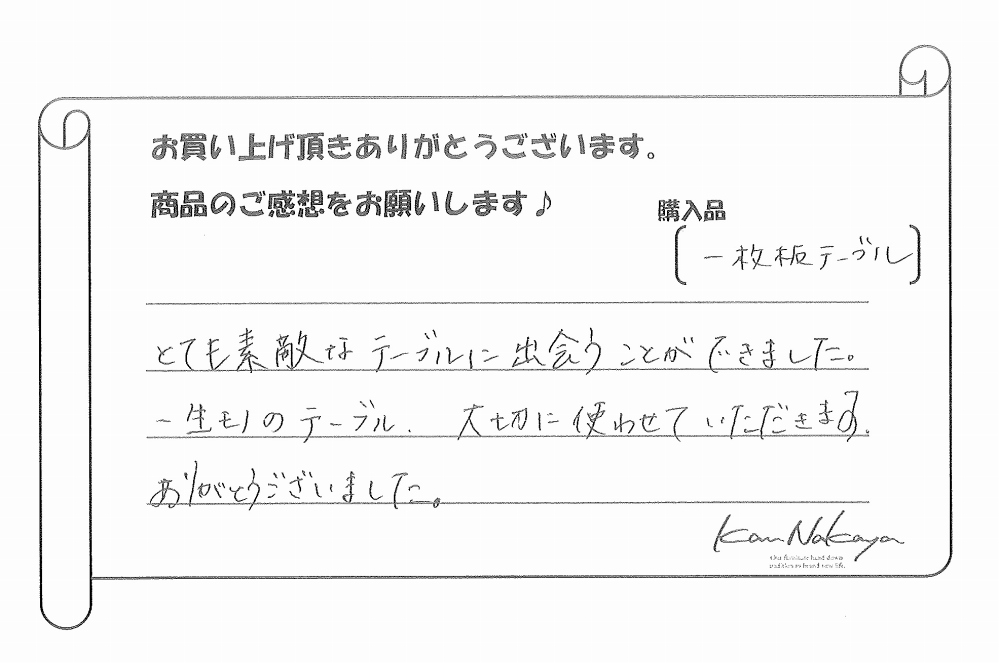 お買い上げ頂きありがとうございます。
商品のご感想をお願いします♪
購入品
一枚板テーブル
とても素敵なテーブルに出会うことができました。
一生モノのテーブル、大切に使わせていただきます。
ありがとうございました。
Kan Nakaya
Our furniture hand down
tradition to brand new life.